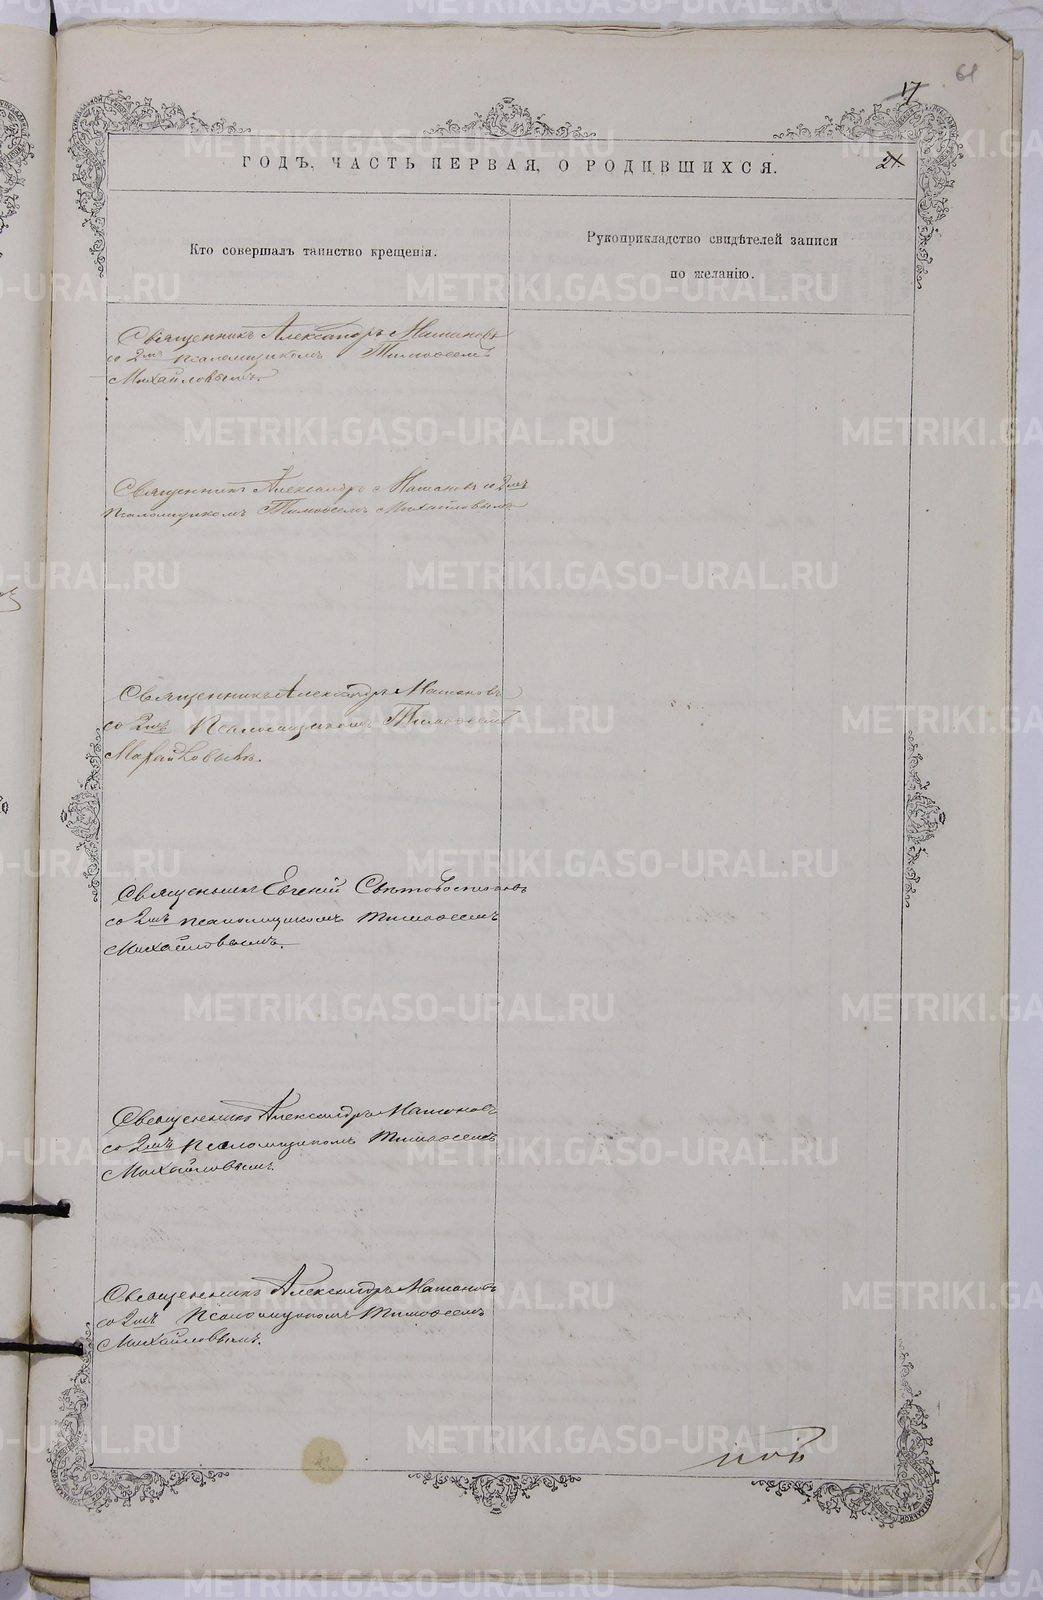 61
17
21
ГОДЪ, ЧАСТЬ ПЕРВАЯ, О РОДИВШИХСЯ.
Кто совершалъ таинство крещенія.
Рукоприкладство свидѣтелей записи
по желанію.
Священникъ Александръ Машановъ
со 2мъ псаломщикомъ Тимофеемъ
Михайловымъ.
Священникъ Александръ Машановъ со 2мъ
псаломщикомъ Тимофеемъ Михайловымъ
Священникъ Александръ Машановъ
со 2мъ Псаломщикомъ Тимофеемъ
Михайловымъ.
Священникъ Евгеній
со 2мъ псаломщикомъ Тимофеемъ
Михайловымъ.
Священникъ Александръ Машановъ
со 2мъ псаломщикомъ Тимофеемъ
Михайловымъ.
Священникъ Александръ Машановъ
со 2мъ Псаломщикомъ Тимофеемъ
Михайловымъ.
METRIKI.GASO-URAL.RU